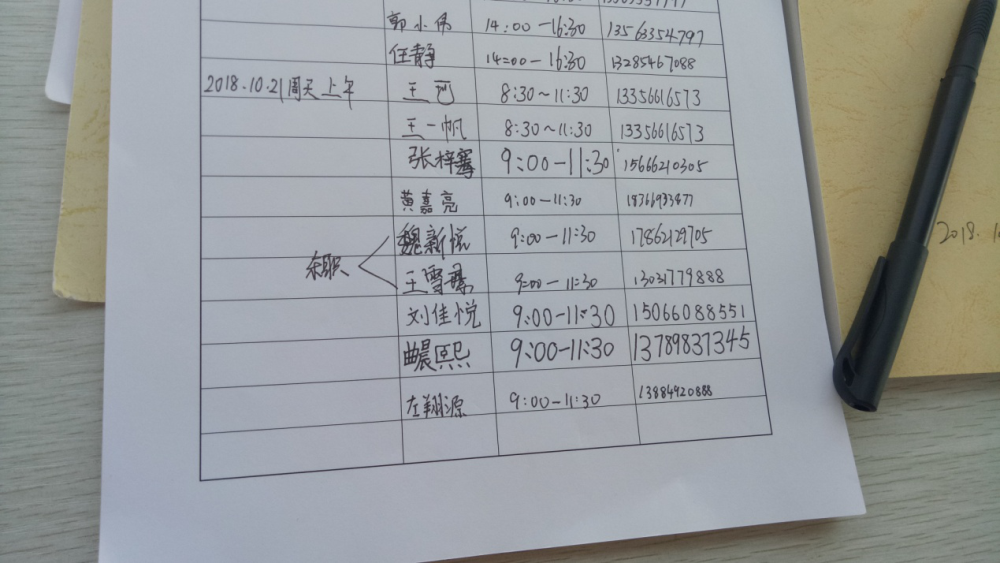 郭小伟 14:00-16:30 13563354797
任静 14:00-16:30 13285467088
2018.10.21周天上午 王可 8:30~11:30 13356616573
王一帆 8:30~11:30 13356616573
张梓骞 9:00-11:30 15666210305
黄嘉亮 9:00-11:30 18766933477
魏新悦 9:00-11:30 17862129705
王雪 9:00-11:30 13031779888
刘佳悦 9:00-11:30 15066088551
熙 9:00-11:30 13789837345
左翔源 9:00-11:30 13884920888
2018.